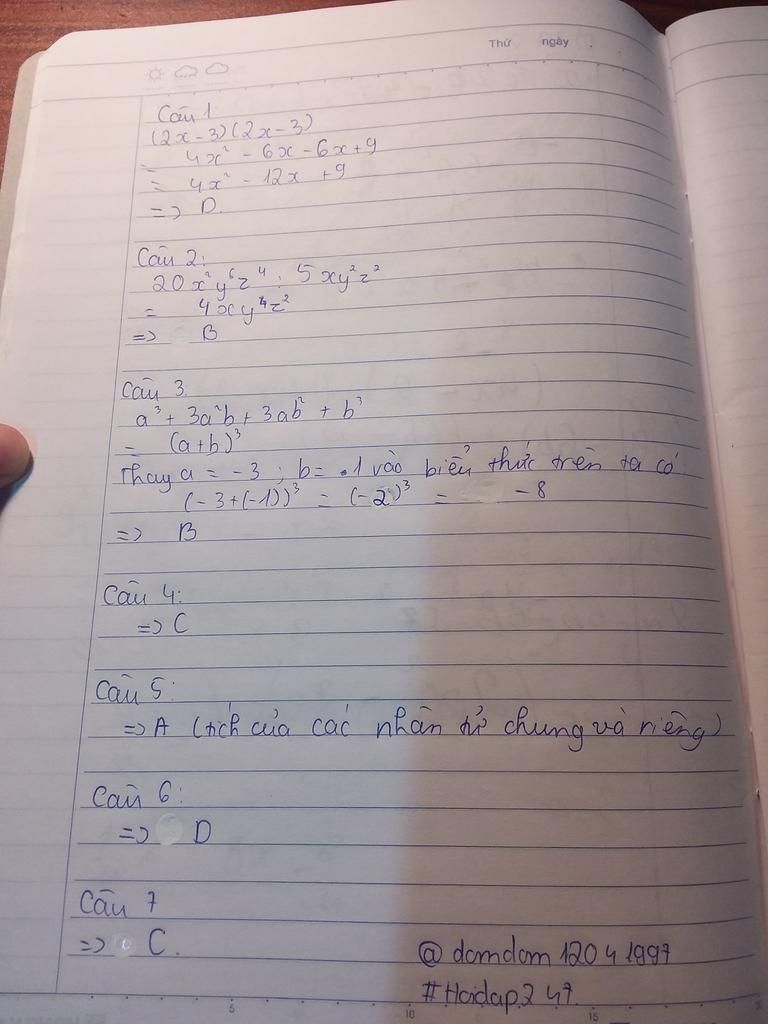 Thứ ngày
Câu 1
(2x-3)(2x-3)
= 4x² - 6x - 6x + 9
= 4x² - 12x + 9
=> D.
Câu 2:
20x²y⁶z⁴ : 5xy²z²
= 4xy⁴z²
=> B
Câu 3.
a³ + 3a²b + 3ab² + b³
= (a+b)³
Thay a = -3 ; b = -1 vào biểu thức trên ta có
(-3+(-1))³ = (-2)³ = -8
=> B
Câu 4:
=> C
Câu 5:
=> A (tích của các nhân tử chung và riêng)
Câu 6:
=> D
Câu 7
=> C.
@domdom12041997
#Hoidap247
5 10 15